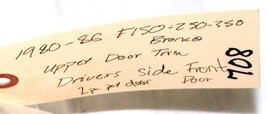 1980-86 F150-250-350
Bronco
Upper Door Trim
Drivers Side Front
Door
708